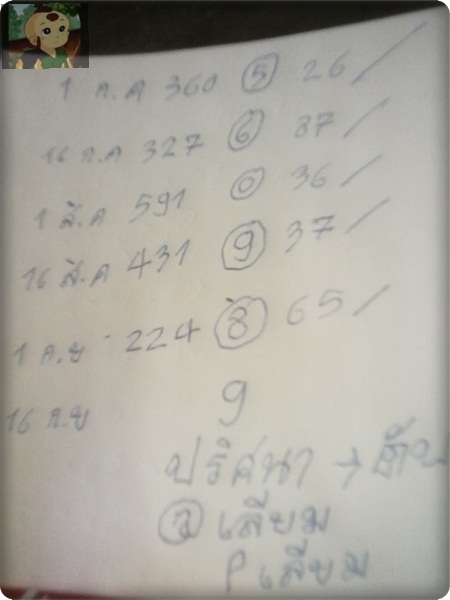 1 ก.ค 360 5 26 /
16 ก.ค 327 6 87 /
1 ส.ค 591 0 36 /
16 ส.ค 431 9 37 /
1 ก.ย 224 8 65 /
16 ก.ย 9
ปริศนา →
เลียม
เลียม